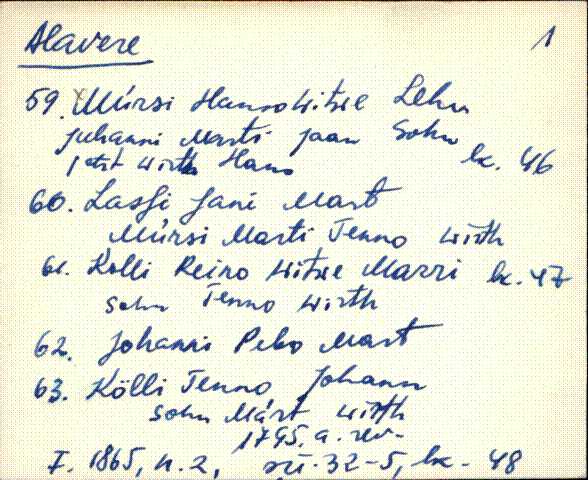 Alavere 1
59. Mürsi Hanso Witwe Lehn
Juhanni Marti Jaan Sohn
jetzt Wirth Hans lk. 46
60. Lassi Jani Mart
Mürsi Marti Tenno Wirth
61. Kölli Reino Witwe Marri lk. 47
Sohn Tenno Wirth
62. Johanni Pebo Mart
63. Kölli Tenno Johann
Sohn Märt Wirth
1795. a. rev.
F. 1865, n. 2, sü. 32-5, lk. 48